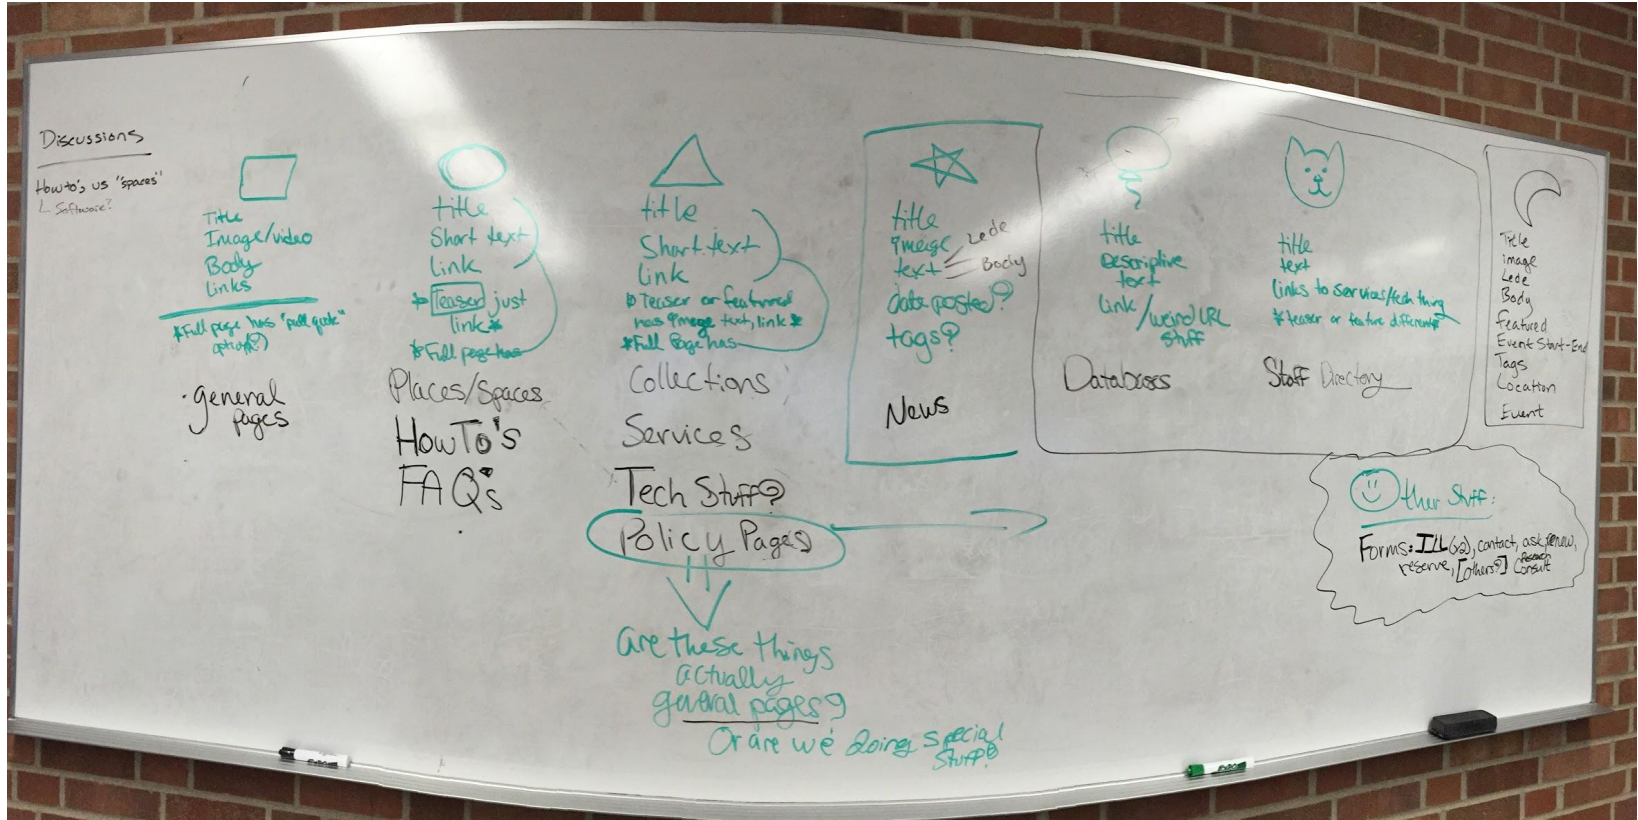 Discussions
How to's vs "spaces"
Software?
Title
Image/video
Body
Links
*Full page has "pull quote"
option(?)
· general
pages
title
Short text
Link
* Teaser just
link *
* Full page has
Places/Spaces
HowTo's
FAQ's
title
Short text
Link
* Teaser or featured
has image text, link *
* Full Page has
Collections
Services
Tech Stuff?
Policy Pages
are these things
actually
general pages?
Or are we doing special
Stuff?
title
image
text
Lede
Body
date posted?
tags?
News
title
Descriptive
text
link/weird URL
stuff
Databases
title
text
links to services/tech thing
* teaser or feature different *
Staff Directory
Title
Image
Lede
Body
Featured
Event Start-End
Tags
Location
Event
ther Stuff:
Forms: ILL (x2), contact, ask, renew,
reserve, [others?] Research
Consult